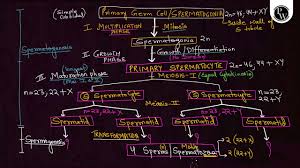 (Simply Cuboidal)
Primary Germ Cell / SPERMATOGONIA
2n=46, 44+XY
I. MULTIPLICATION PHASE
Mitosis
Inside wall of S. tubule
Spermatogenesis
Spermatogonia
2n
II GROWTH PHASE
Growth / Differentiation
(longest)
PRIMARY SPERMATOCYTE
2n=46, 44+XY
III Maturation phase
MEIOSIS-I
(Equal Cytokinesis)
n=23, 22+X
2° Spermatocyte
2° Spermatocyte
n=23, 22+Y
Meiosis-II
n=23, 22+X
n=23, 22+Y
Spermatid
Spermatid
Spermatid
Spermatid
Spermiogenesis
TRANSFORMATION
4 Sperms
Spermatozoa
2 (22+X)
2 (22+Y)